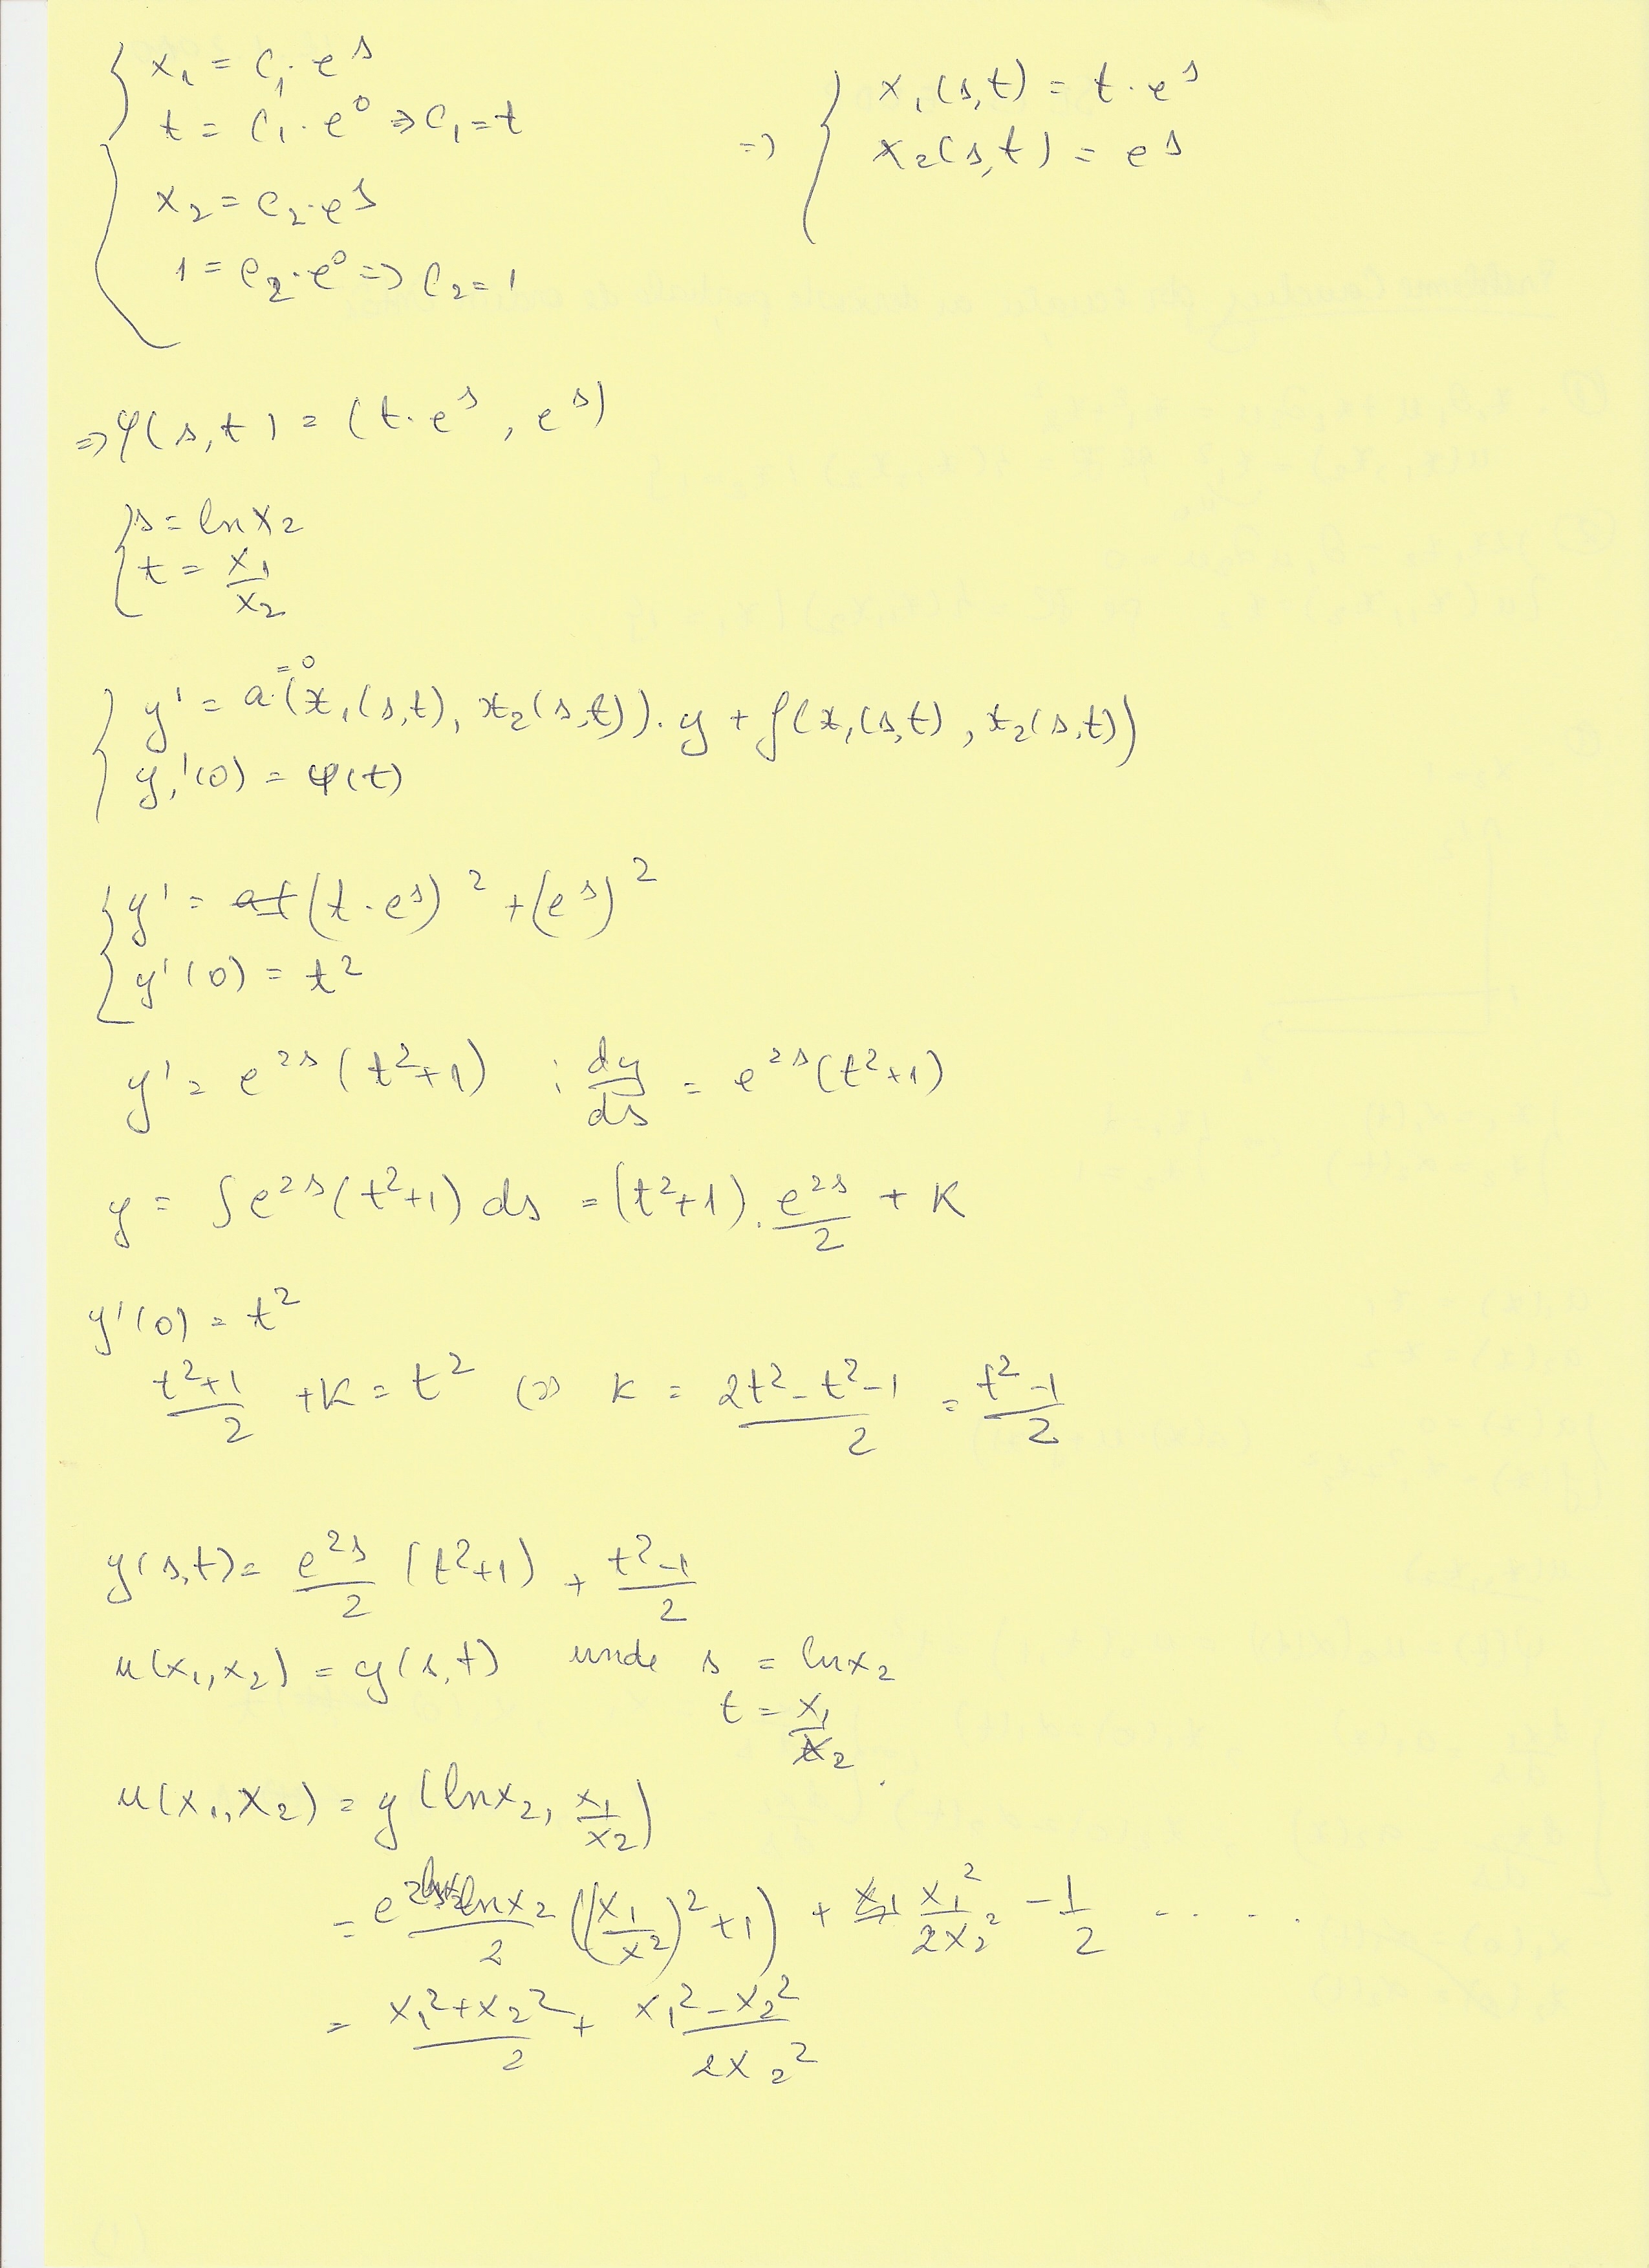 x₁ = C₁ · e^s
t = C₁ · e⁰ ⇒ C₁ = t
x₂ = C₂ · e^s
1 = C₂ · e⁰ ⇒ C₂ = 1
⇒ { x₁(s,t) = t · e^s
x₂(s,t) = e^s
⇒ φ(s,t) = (t · e^s, e^s)
s = ln x₂
t = x₁/x₂
= 0
y' = a · (x₁(s,t), x₂(s,t)) · y + f(x₁(s,t), x₂(s,t))
y'(0) = φ(t)
y' = (t · e^s)² + (e^s)²
y'(0) = t²
y' = e^{2s}(t²+1) ; dy/ds = e^{2s}(t²+1)
y = ∫ e^{2s}(t²+1) ds = (t²+1) · e^{2s}/2 + K
y'(0) = t²
(t²+1)/2 + K = t² (⇒ K = (2t² - t² - 1)/2 = (t²-1)/2
y(s,t) = e^{2s}/2 (t²+1) + (t²-1)/2
u(x₁,x₂) = y(s,t) unde s = ln x₂
t = x₁/x₂
u(x₁,x₂) = y(ln x₂, x₁/x₂)
= e^{2 ln x₂}/2 ((x₁/x₂)² + 1) + x₁²/2x₂² - 1/2 .....
= (x₁² + x₂²)/2 + (x₁² - x₂²)/2x₂²